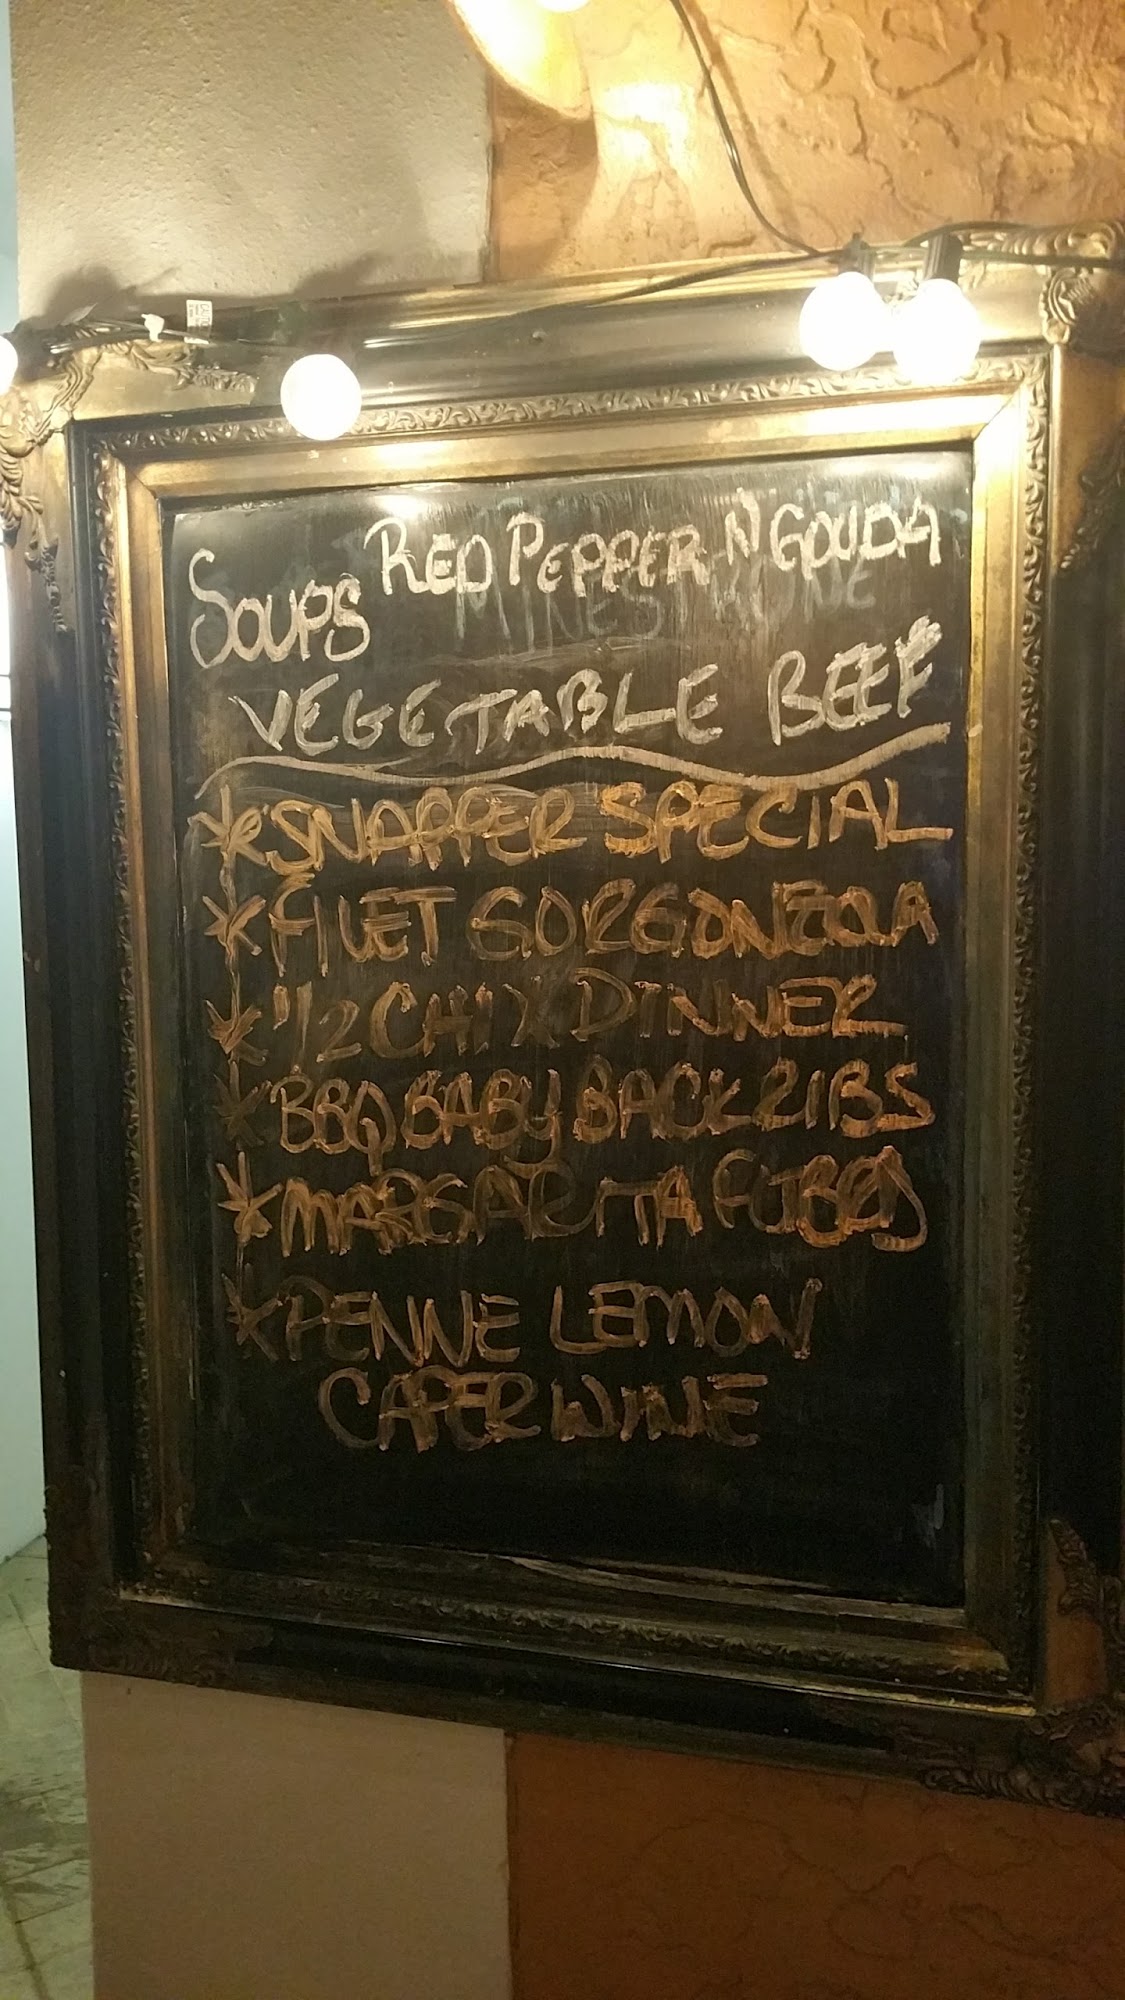 SOUPS RED PEPPER N GOUDA
VEGETABLE BEEF
*SNAPPER SPECIAL
*FILET GORGONZOLA
*1/2 CHIX DINNER
*BBQ BABY BACK RIBS
*MARGARITA
*PENNE LEMON
CAPER WINE